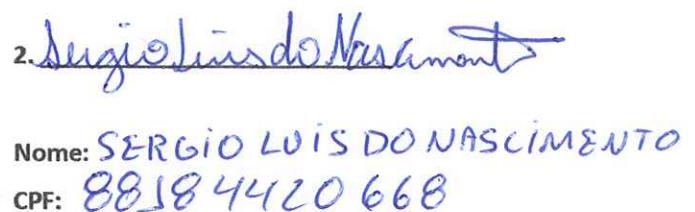 2. Sergio Luis do Nascimento
Nome: SERGIO LUIS DO NASCIMENTO
CPF: 88184420668